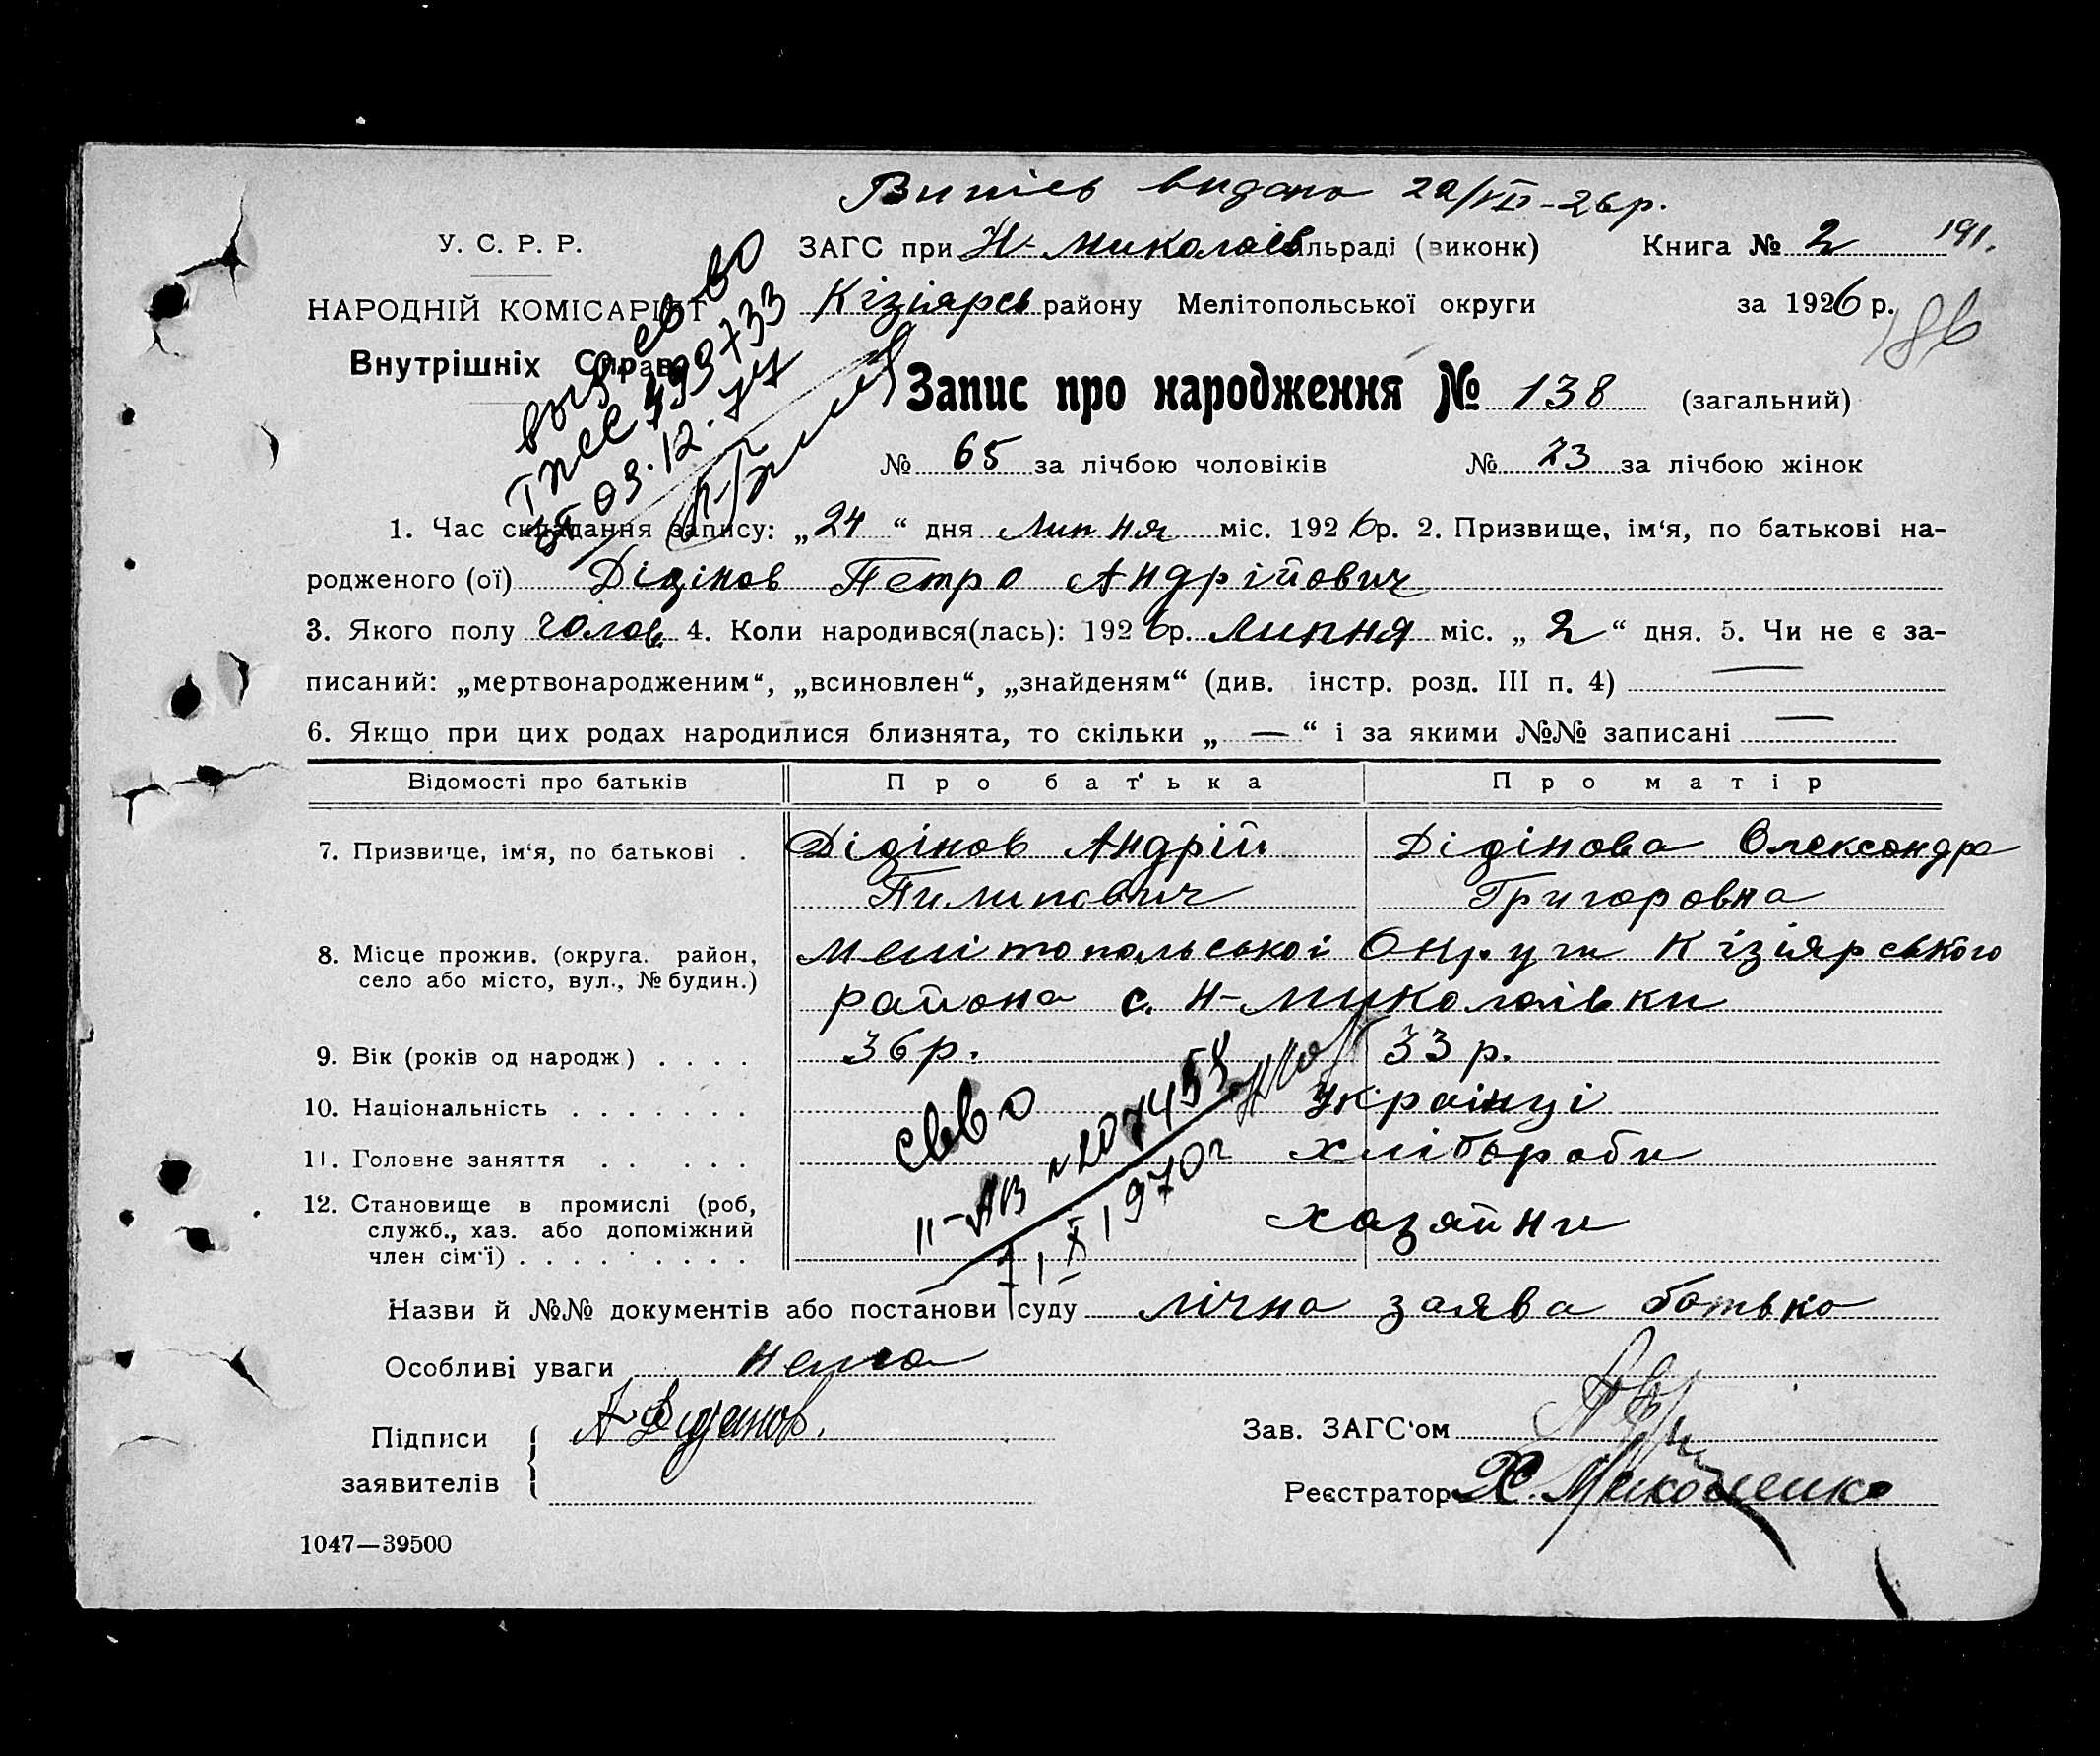 Випись видано 22/VII-26р.
У. С. Р. Р.
ЗАГС при Н-Миколаїв сільраді (виконк)
Книга № 2
191.
НАРОДНІЙ КОМІСАРІЯТ
Кізіярсь району Мелітопольської округи
за 1926 р.
186
Внутрішніх Справ
выд. св во
03.12.77
Запис про народження № 138 (загальний)
№ 65 за лічбою чоловіків № 73 за лічбою жінок
1. Час складання запису: „24“ дня Липня міс. 1926р. 2. Призвище, ім‘я, по батькові на-
родженого (ої) Дідінов Петро Андрійович
3. Якого полу Чолов. 4. Коли народився(лась): 1926р. Липня міс. „2“ дня. 5. Чи не є за-
писаний: „мертвонародженим“, „всиновлен“, „знайденям“ (див. інстр. розд. III п. 4) —
6. Якщо при цих родах народилися близнята, то скільки „—“ і за якими №№ записані —
Відомості про батьків Про батька Про матір
7. Призвище, ім‘я, по батькові . Дідінов Андрій Дідінова Олександра
Пилипович Григоровна
8. Місце прожив. (округа. район, Мелітопольської Округи Кізіярського
село або місто, вул., № будин.)
района с. Н-Миколаівки
9. Вік (років од народж) . . . . 36р. 33 р.
10. Національність . . . . . . . Українці
11. Головне заняття . . . . . . Хлібороби
св во
II-АВ №207458
7 I X 1970г
12. Становище в промислі (роб,
служб., хаз. або допоміжний
член сім‘ї) . . . . . . . . Хазяйни
Назви й №№ документів або постанови суду лічна заява батька
Особливі уваги нема
Підписи
заявителів
А Дидинов.
Зав. ЗАГС‘ом
Реєстратор
1047—39500